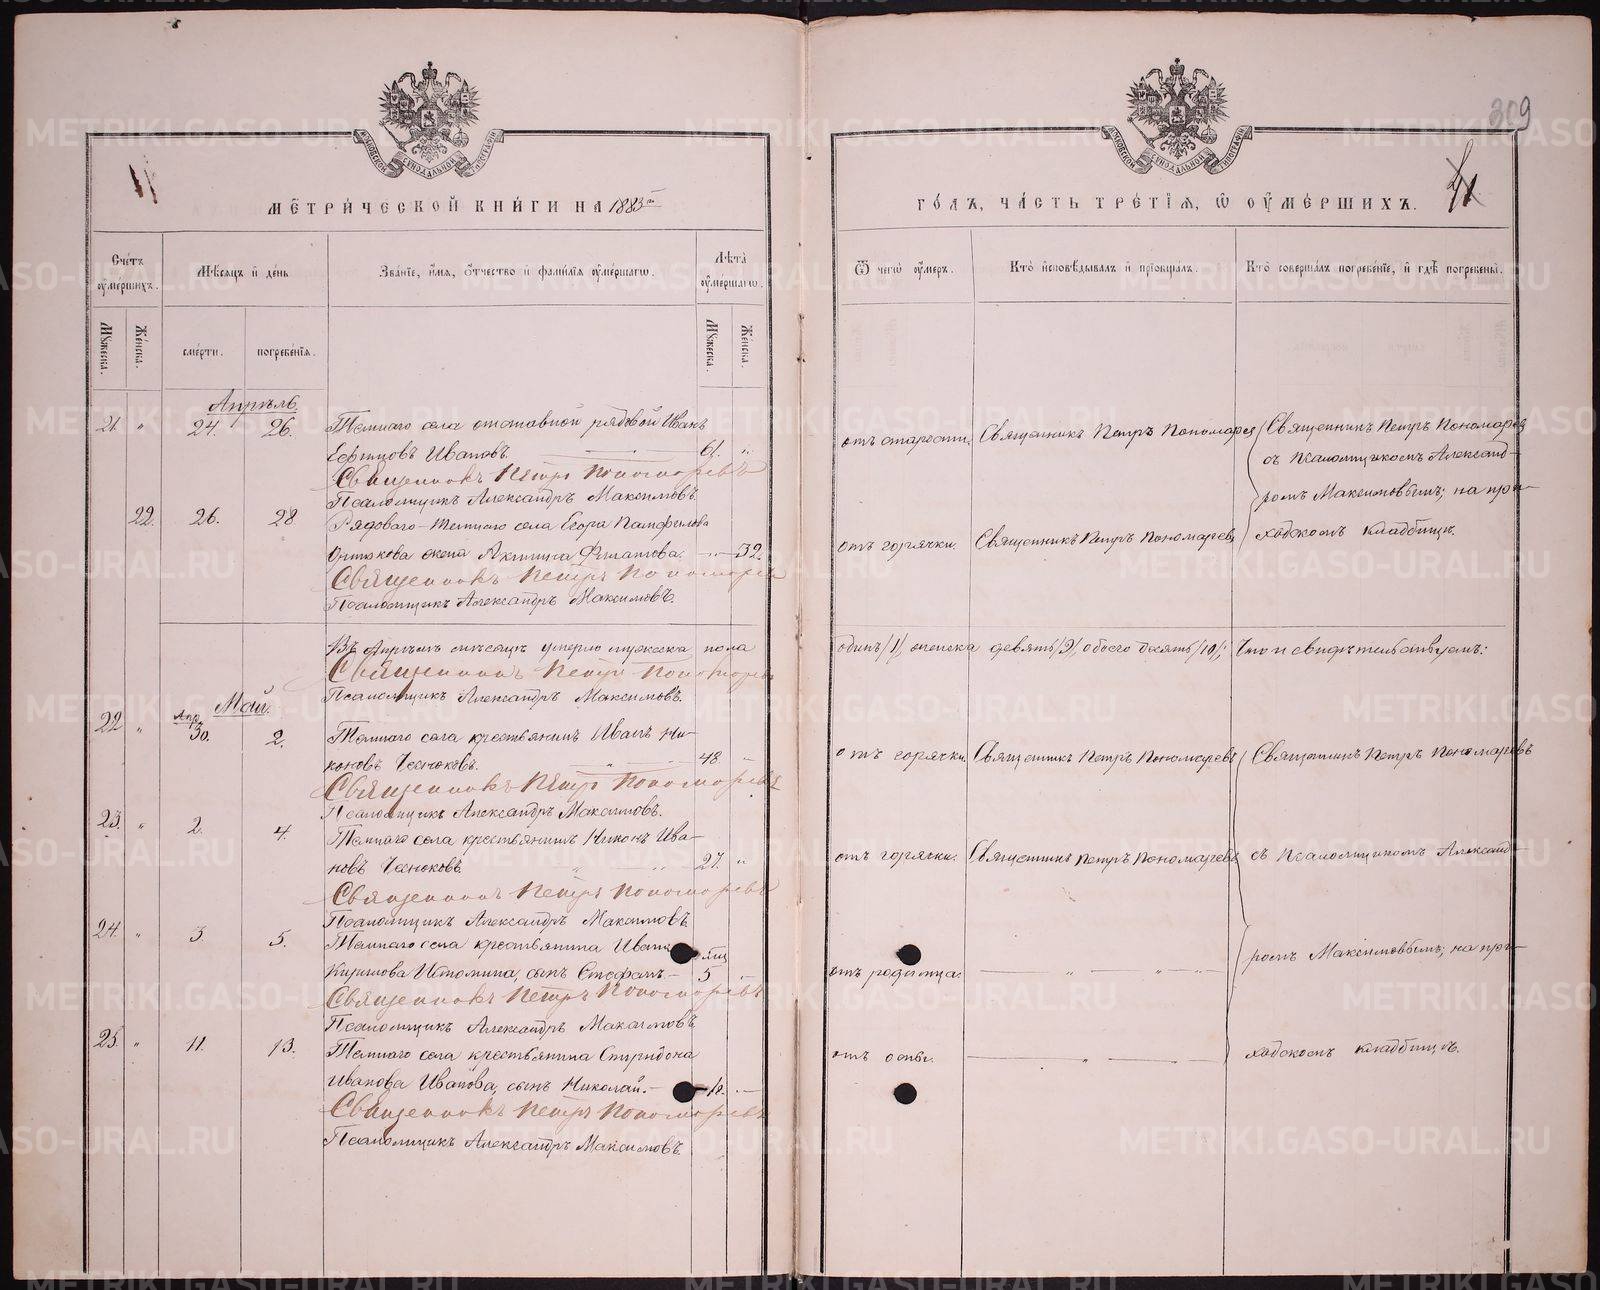 309
11
41
МОСКОВСКОЙ СѴНОДАЛЬНОЙ ТИПОГРАФІИ
МОСКОВСКОЙ СѴНОДАЛЬНОЙ ТИПОГРАФІИ
МЕТРИЧЕСКОЙ КНИГИ НА 1883й
ГОДЪ, ЧАСТЬ ТРЕТІЯ, Ѡ ОУМЕРШИХЪ.
Счетъ оумершихъ.
Мѣсяцъ и день
Званіе, имя, отчество и фамилія оумершагѡ.
Лѣта оумершагѡ.
Ѿ чегѡ оумеръ.
Кто исповѣдывалъ и пріобщалъ.
Кто совершалъ погребеніе, и гдѣ погребены.
Мужеска.
Женска.
смерти.
погребенія.
Мужеска.
Женска.
Апрѣль.
21. " 24. 26. Темнаго села отставной рядовой Иванъ
Ефимовъ Ивановъ. 61. "
отъ старости. Священникъ Петръ Пономаревъ
Священникъ Петръ Пономаревъ
съ Псаломщикомъ Александ-
ромъ Максимовымъ; на при-
ходскомъ кладбищѣ.
Священникъ Петръ Пономаревъ
Псаломщикъ Александръ Максимовъ.
22. 26. 28. Рядоваго Темнаго села Егора Памфилова
жена Акилина Филатова. 32.
отъ горячки. Священникъ Петръ Пономаревъ
Священникъ Петръ Пономаревъ
Псаломщикъ Александръ Максимовъ.
Въ Апрѣлѣ мѣсяцѣ умерло мужеска пола
одинъ /1/, женска девять /9/, обоего десять /10/; Что и свидѣтельствуемъ:
Священникъ Петръ Пономаревъ
Псаломщикъ Александръ Максимовъ.
Май.
22 " Апр. 30. 2. Темнаго села крестьянинъ Иванъ Ни-
коновъ Чесноковъ. 48 "
отъ горячки. Священникъ Петръ Пономаревъ
Священникъ Петръ Пономаревъ
Священникъ Петръ Пономаревъ
Псаломщикъ Александръ Максимовъ.
23. " 2. 4. Темнаго села крестьянинъ Никонъ Ива-
новъ Чесноковъ. 27. "
отъ горячки. Священникъ Петръ Пономаревъ
съ Псаломщикомъ Александ-
Священникъ Петръ Пономаревъ
Псаломщикъ Александръ Максимовъ.
24. " 3. 5. Темнаго села крестьянина Ивана
Кирилова Истомина, сынъ Стефанъ. 5
отъ родимца.
ромъ Максимовымъ; на при-
Священникъ Петръ Пономаревъ
Псаломщикъ Александръ Максимовъ.
25. " 11. 13. Темнаго села крестьянина Спиридона
Иванова Иванова, сынъ Николай.
отъ оспы.
ходскомъ кладбищѣ.
Священникъ Петръ Пономаревъ
Псаломщикъ Александръ Максимовъ.
METRIKI.GASO-URAL.RU